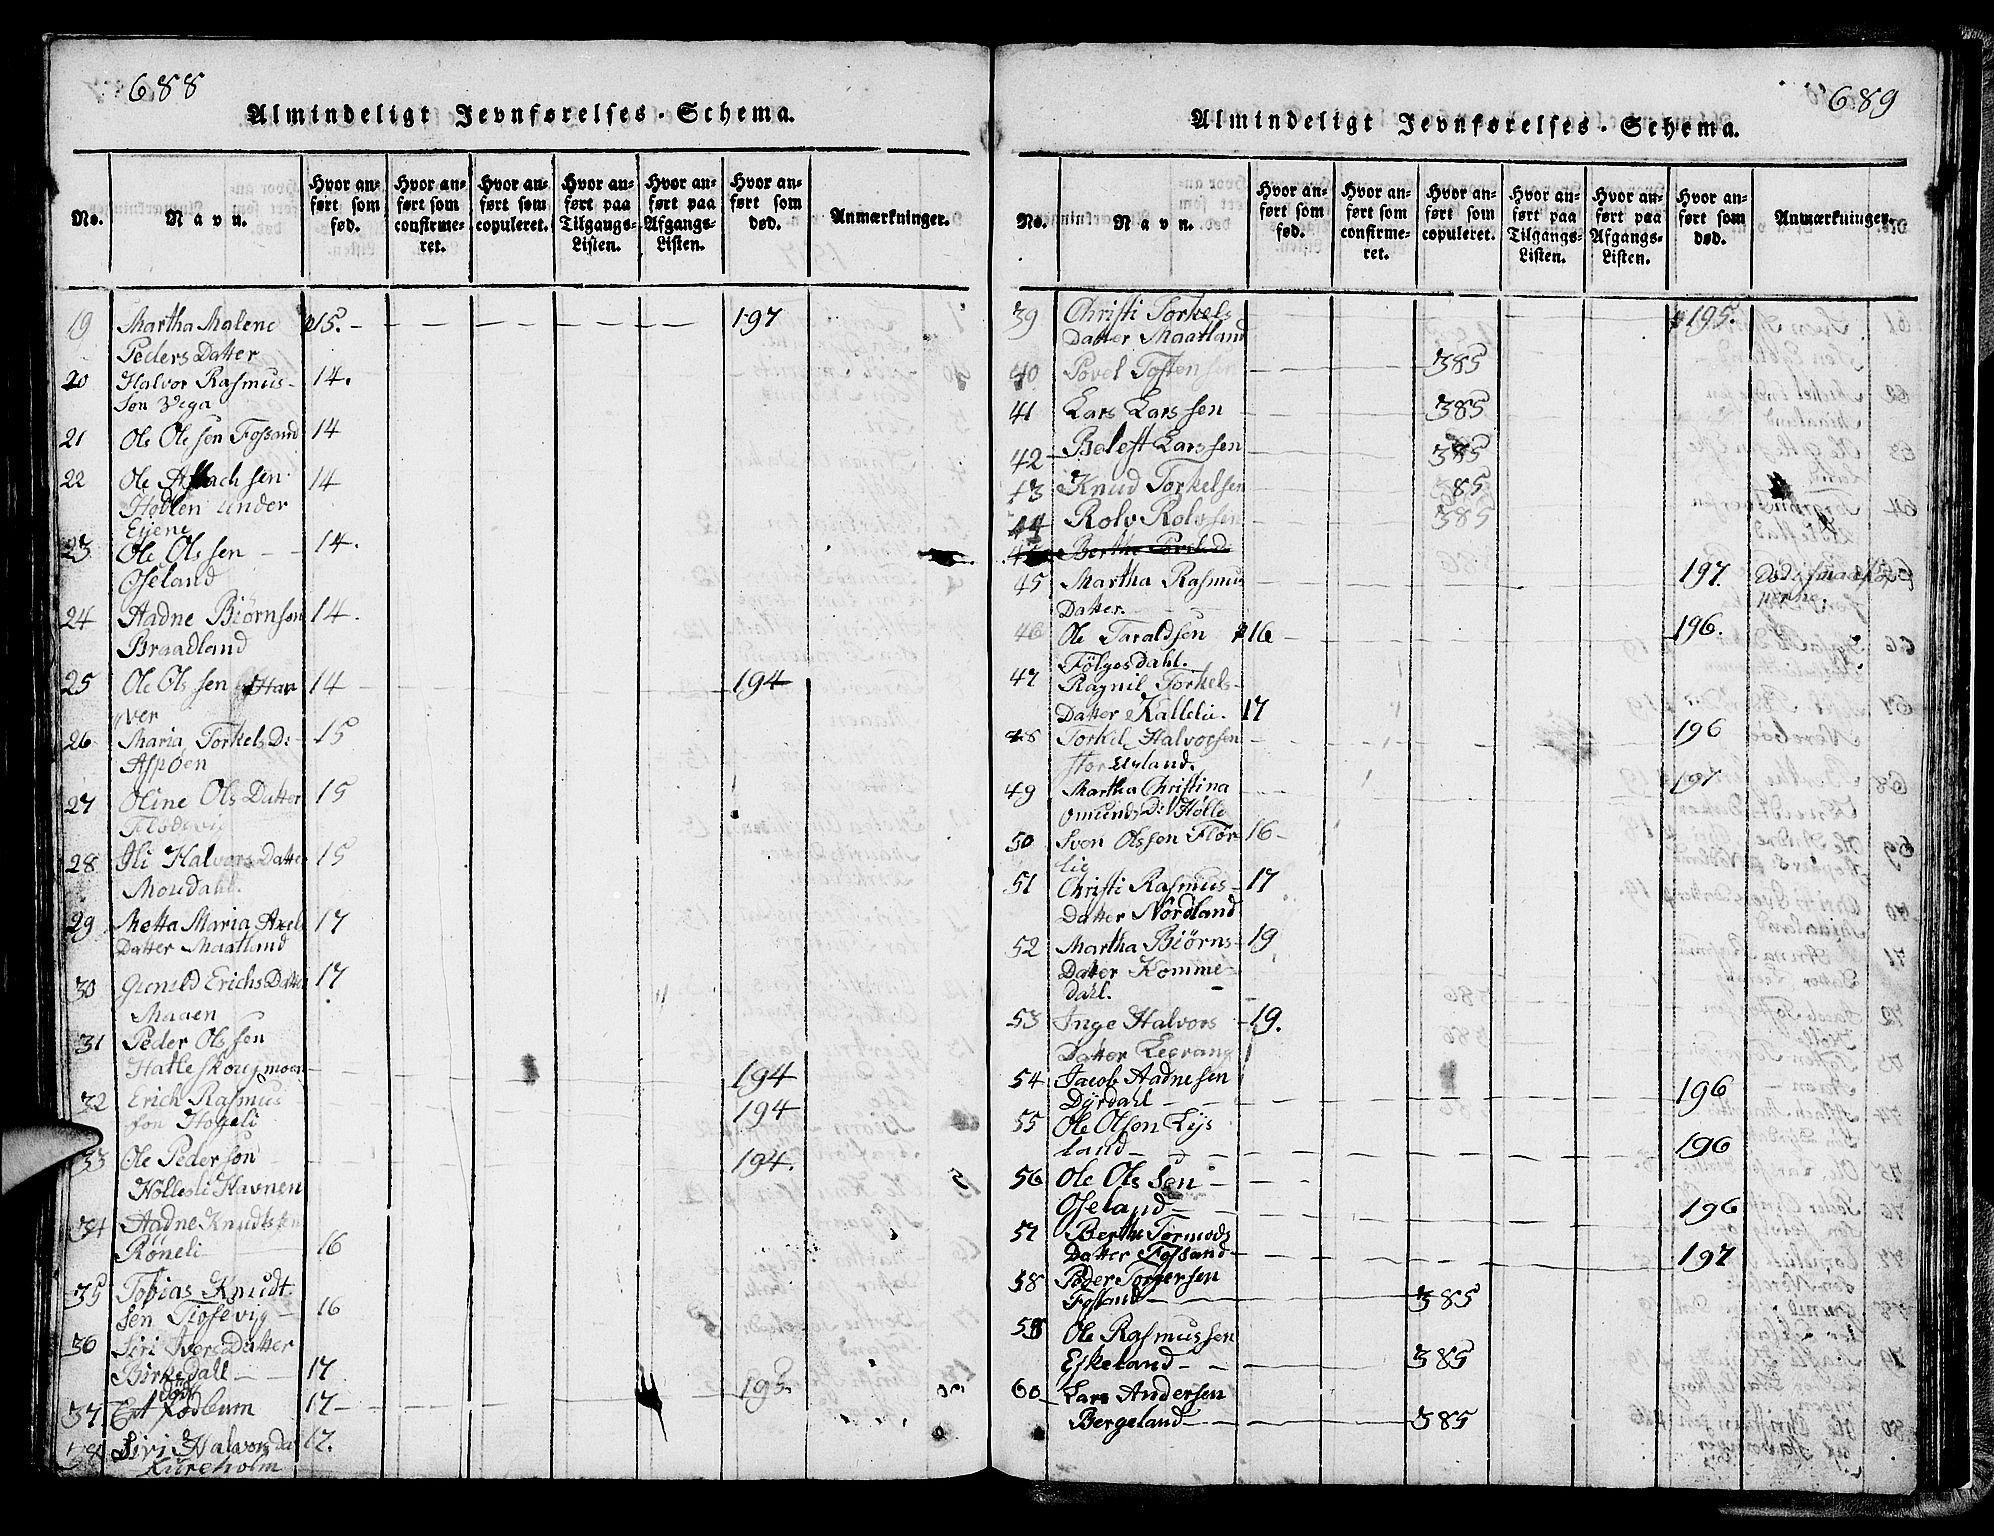 688
Almindeligt Jevnførelses-Schema.
No. Navn. Hvor anført som fød. Hvor anført som confirmeret. Hvor anført som copuleret. Hvor anført paa Tilgangs-Listen. Hvor anført paa Afgangs-Listen. Hvor anført som død. Anmærkninger.
19 Martha Malene 15. 197
Peders Datter
20 Halvor Rasmus- 14.
Søn Vega
21 Ole Olssen Fossand 14
22 Ole Aslachsen 14
Hødlen under
Eyene
23 Ole Olssen 14.
Oseland
24 Aadne Biørnsøn 14.
Braadland
25 Ole Olssen Har 14 194
ver
26 Maria Torkels D: 15
Aspøen
27 Oline Ols Datter 15
28 Ili Halvors Datter 15
Moudahl.
29 Metta Maria Axels 17
Datter Maatland
30 Gunild Erichs Datter 17
Maaen
31 Peder Olssen
Hatleskougmoen 194
32 Erich Rasmus
søn Hogeli 194
33 Ole Pedersøn 194.
Hollesli Havnen
34 Aadne Knudtsen
Røneli 16
35 Tobias Knudt
sen Tiøsevig 16
36 Siri Ivers Datter
Birkedall 17
død
37 Et fødbarn 17 195.
38 Siri Halvors Da 17.
Kureholm
689
Almindeligt Jevnførelses-Schema.
No. Navn. Hvor anført som fød. Hvor anført som confirmeret. Hvor anført som copuleret. Hvor anført paa Tilgangs-Listen. Hvor anført paa Afgangs-Listen. Hvor anført som død. Anmærkninger.
39 Christi Torkels 195.
Datter Maatland
40 Povel Tostensen 385
41 Lars Larssen 385
42 Belest Larssen 385
43 Knud Torkelsen 385
44 Rolv Rolvsen 385
45 Martha Rasmus 197.
Datter.
46 Ole Taraldsen 16 196.
Følgesdahl.
47 Ragnil Torkels-
Datter Kallelie. 17
48 Torkel Halvorsen 196
stor Eyland.
49 Martha Christina 197
Omunds D: Holle
50 Sven Olssen Flør- 16
lie
51 Christi Rasmus- 17
Datter Nordland
52 Martha Biørns- 19
Datter Komme-
dahl.
53 Inge Halvors 19.
Datter Eevrang
54 Jacob Aadnesen
Dyrdahl 196
55 Ole Olsen Lys
land 196
56 Ole Olssen
Oseland 196
57 Berthe Tormods
Datter Fossand 197
58 Peder Torgersen
Fossand 385
59 Ole Rasmussen
Eskeland 385
60 Lars Andersen
Bergeland 385